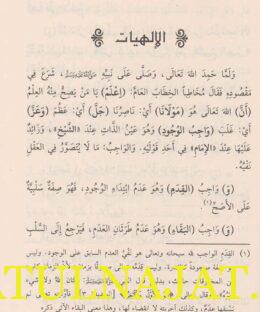 الإلهيات
وَلَمَّا حَمِدَ اللهَ تَعَالَى، وَصَلَّى عَلَى نَبِيِّهِ شَرَعَ فِي
مَقْصُودِهِ فَقَالَ مُخَاطِبًا الخِطَابَ العَامَّ: (اِعْلَمْ) يَا مَنْ يَصِحُّ مِنْهُ العِلْمُ
(أَنَّ) اللهَ تَعَالَى هُوَ (مَوْلَانَا) أَيْ: نَاصِرُنَا (جَلَّ) أَيْ: عَظُمَ (وَعَزَّ)
أَيْ: غَلَبَ (وَاجِبُ الوُجُودِ) وَهُوَ عَيْنُ الذَّاتِ عِنْدَ «الشَّيْخِ»، وَزَائِدٌ
عَلَيْهَا عِنْدَ «الإِمَامِ» فِي أَحَدِ قَوْلَيْهِ. وَالوَاجِبُ: مَا لَا يُتَصَوَّرُ فِي العَقْلِ
نَفْيُهُ.
(وَ) وَاجِبُ (القِدَمِ) وَهُوَ عَدَمُ ابْتِدَاءِ الوُجُودِ، فَهُوَ صِفَةٌ سَلْبِيَّةٌ
عَلَى الأَصَحِّ(١)
(وَ) وَاجِبُ (البَقَاءِ) وَهُوَ عَدَمُ طَرَيَانِ العَدَمِ، فَيَرْجِعُ إِلَى السَّلْبِ
(١) القِدَم الواجب لله سبحانه وتعالى هو نَفْيُ العدم السابق على الوجود، وليس
ATULNAJAT.